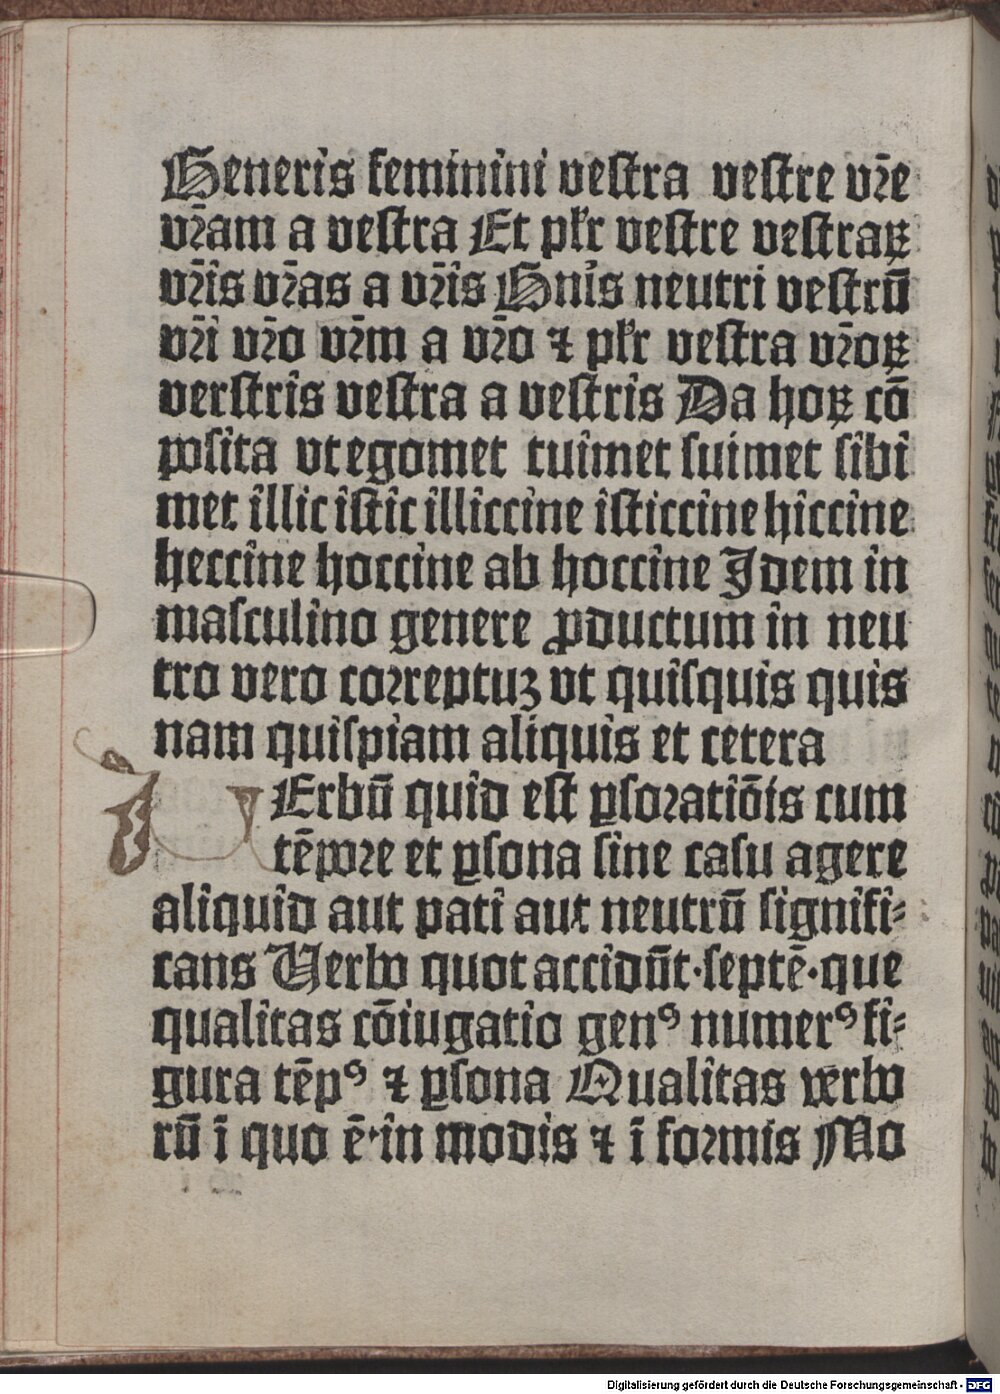 Generis feminini vestra vestre vr̄e
vr̄am a vestra Et pl̛r vestre vestraꝝ
vr̄is vr̄as a vr̄is Gn̛is neutri vestrū
vr̄i vr̄o vr̄m a vr̄o ⁊ pl̛r vestra vr̄oꝝ
verstris vestra a vestris Da hoꝝ cō
posita vt egomet tuimet suimet sibi
met illic istic illiccine isticcine hiccine
heccine hoccine ab hoccine Idem in
masculino genere ꝓductum in neu
tro vero correptuꝫ vt quisquis quis
nam quispiam aliquis et cetera
VErbū quid est ꝑsoratiōis cum
tēpore et ꝑsona sine casu agere
aliquid aut pati aut neutrū signifi⸗
cans Verbo quot accidūt·septē·que
qualitas cōiugatio genꝰ numerꝰ fi⸗
gura tēpꝰ ⁊ ꝑsona Qualitas verbo
rū ī quo ē·in modis ⁊ ī formis Mo
Digitalisierung gefördert durch die Deutsche Forschungsgemeinschaft - DFG